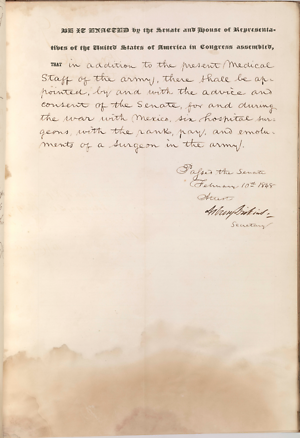 BE IT ENACTED by the Senate and House of Representa-
tives of the United States of America in Congress assembled,
THAT in addition to the present Medical
Staff of the army, there shall be ap-
pointed, by and with the advice and
consent of the Senate, for and during
the war with Mexico, six hospital sur-
geons, with the rank, pay, and emolu-
ments of a Surgeon in the army.
Passed the Senate
February 10th 1848
Attest
Asbury Dickins
Secretary